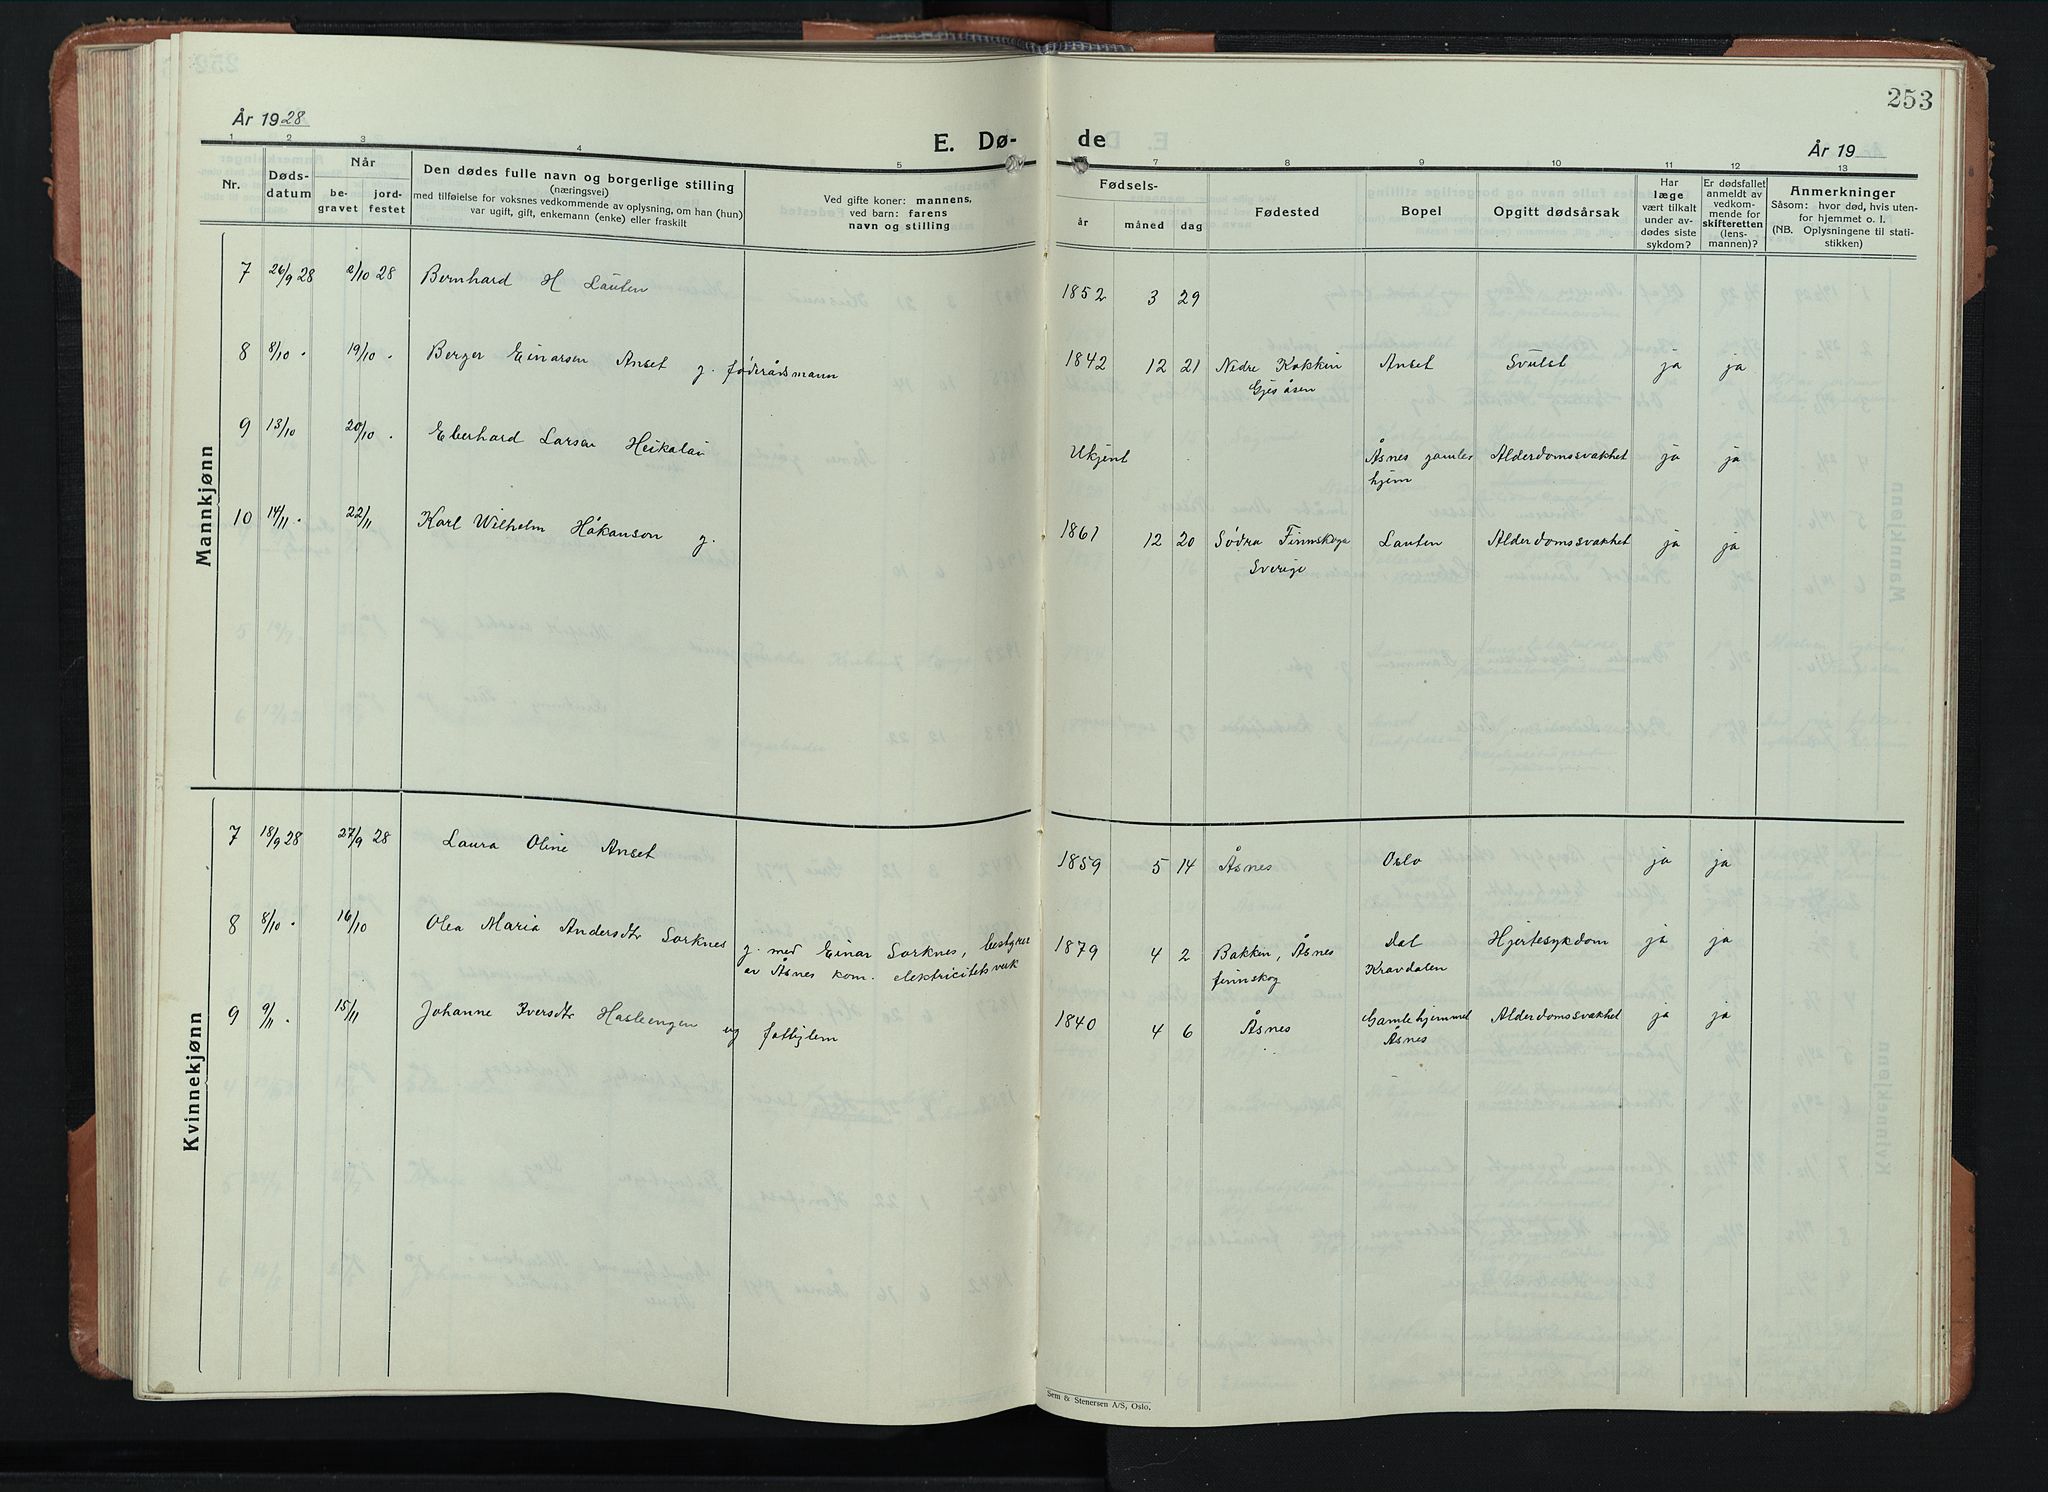 253
År 1928
E. Dø-
de
År 19
1 2 3 4 5 7 8 9 10 11 12 13
Nr.
Døds-
datum
Når
be-
gravet
jord-
festet
Den dødes fulle navn og borgerlige stilling
(næringsvei)
med tilføielse for voksnes vedkommende av oplysning, om han (hun)
var ugift, gift, enkemann (enke) eller fraskilt
Ved gifte koner: mannens,
ved barn: farens
navn og stilling
Fødsels-
år måned dag
Fødested
Bopel
Opgitt dødsårsak
Har
læge
vært tilkalt
under av-
dødes siste
sykdom?
Er dødsfallet
anmeldt av
vedkom-
mende for
skifteretten
(lens-
mannen)?
Anmerkninger
Såsom: hvor død, hvis uten-
for hjemmet o. l.
(NB. Oplysningene til stati-
stikken)
Mannkjønn
7 26/9 28 2/10 28 Bernhard H Lauten 1852 3 29
8 8/10 . 19/10 . Berger Einarsen Anset g. føderådsmann 1842 12 21 Nedre Kokkin Anset Svulst ja ja
Gjesåsen
9 13/10 20/10 . Eberhard Larsen Heikalai Ukjent Åsnes gamle Alderdomssvakhet ja ja
hjem
10 14/11 . 22/11 Karl Wilhelm Håkanson g. 1861 12 20 Södra Finnskoga Lauten Alderdomssvakhet ja ja
Sverige
Kvinnekjønn
7 18/9 28 27/9 28 Laura Oline Anset 1859 5 14 Åsnes Oslo ja ja
8 8/10 . 16/10 Olea Maria Andersdtr Sorknes g. med Einar Sorknes, bestyrer 1879 4 2 Bakken, Åsnes Dal Hjertesykdom ja ja
av Åsnes kom. elektricitetsverk finnskog Kravdalen
9 9/11 . 15/11 Johanne Iversdtr Hasleengen ug fattiglem 1840 4 6 Åsnes Gamlehjemmet Alderdomssvakhet ja ja
Åsnes
Sem & Stenersen A/S, Oslo.